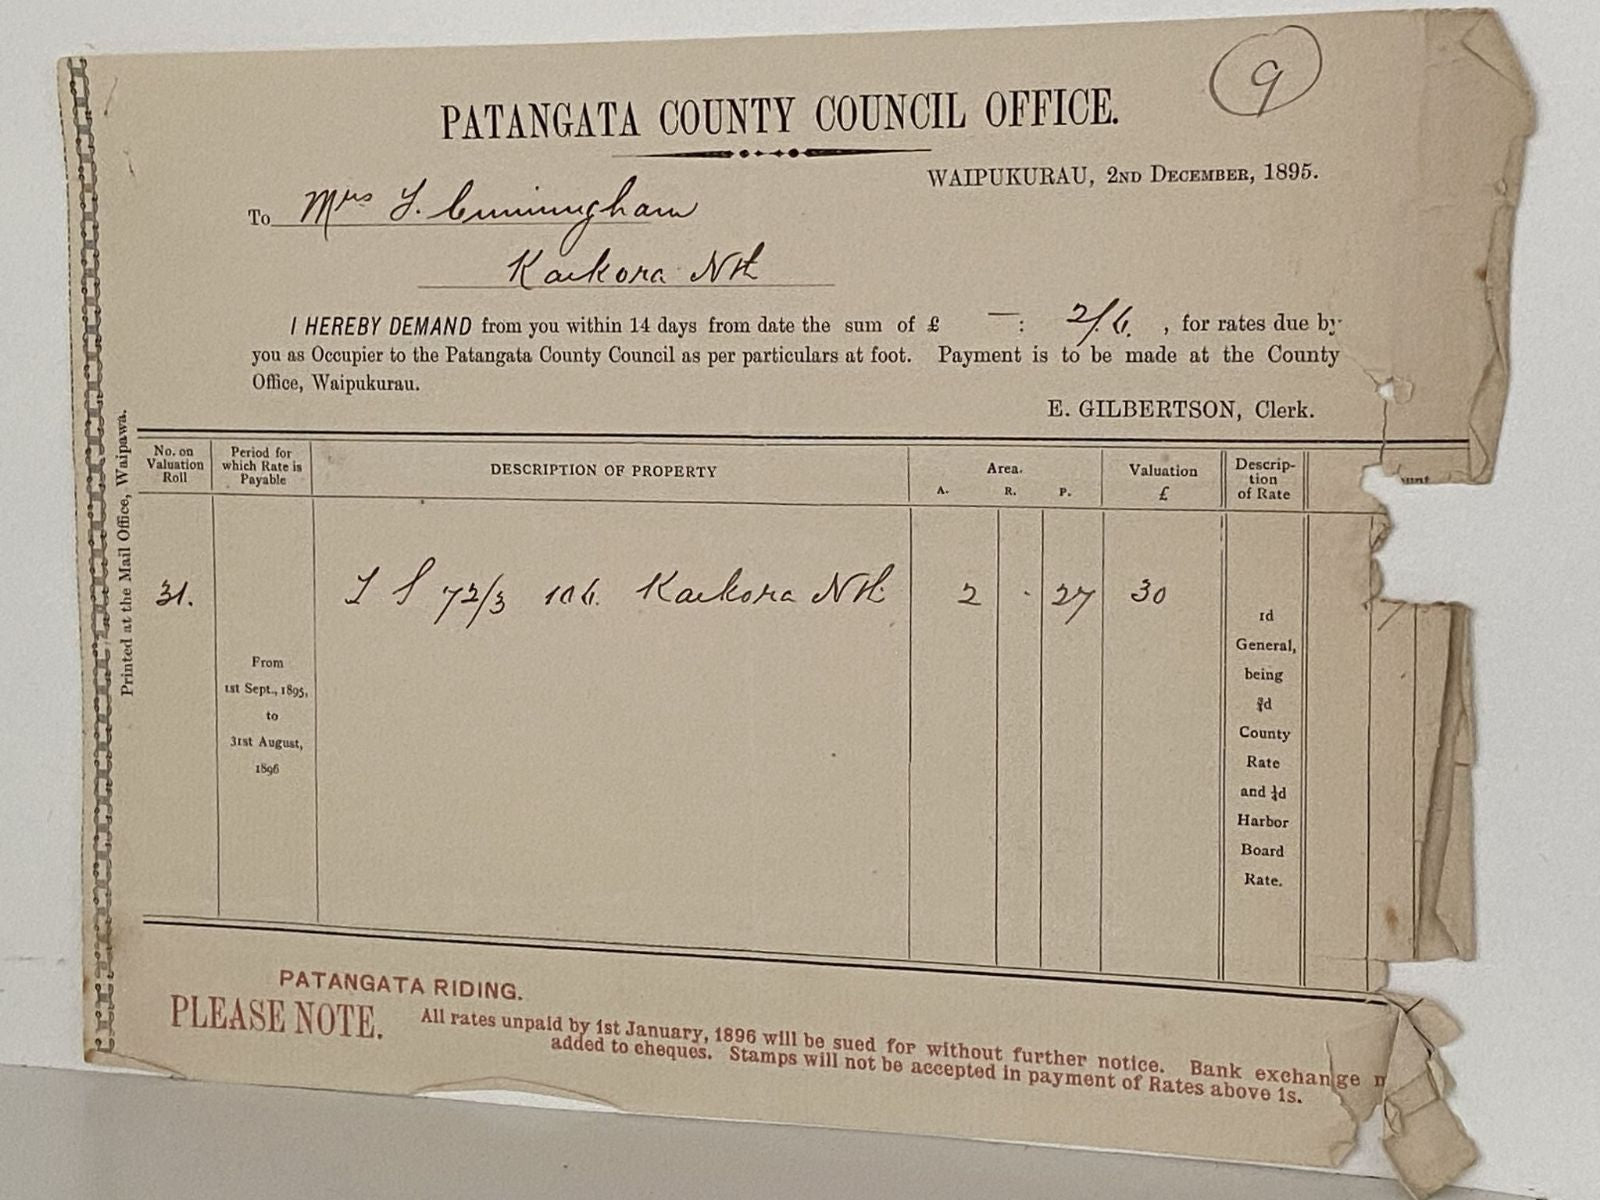 9
PATANGATA COUNTY COUNCIL OFFICE.
WAIPUKURAU, 2ND DECEMBER, 1895.
To Mrs Cunningham
Kaikora Nth
I HEREBY DEMAND from you within 14 days from date the sum of £ — : 2/6. , for rates due by
you as Occupier to the Patangata County Council as per particulars at foot. Payment is to be made at the County
Office, Waipukurau.
E. GILBERTSON, Clerk.
Printed at the Mail Office, Waipawa.
No. on Valuation Roll
Period for which Rate is Payable
DESCRIPTION OF PROPERTY
Area.
A. R. P.
Valuation £
Description of Rate
31. 72/3 106. Kaikora Nth 2 . 27 30
From
1st Sept., 1895,
to
31st August,
1896
1d
General,
being
¾d
County
Rate
and ¼d
Harbor
Board
Rate.
PATANGATA RIDING.
PLEASE NOTE. All rates unpaid by 1st January, 1896 will be sued for without further notice. Bank exchange
added to cheques. Stamps will not be accepted in payment of Rates above 1s.